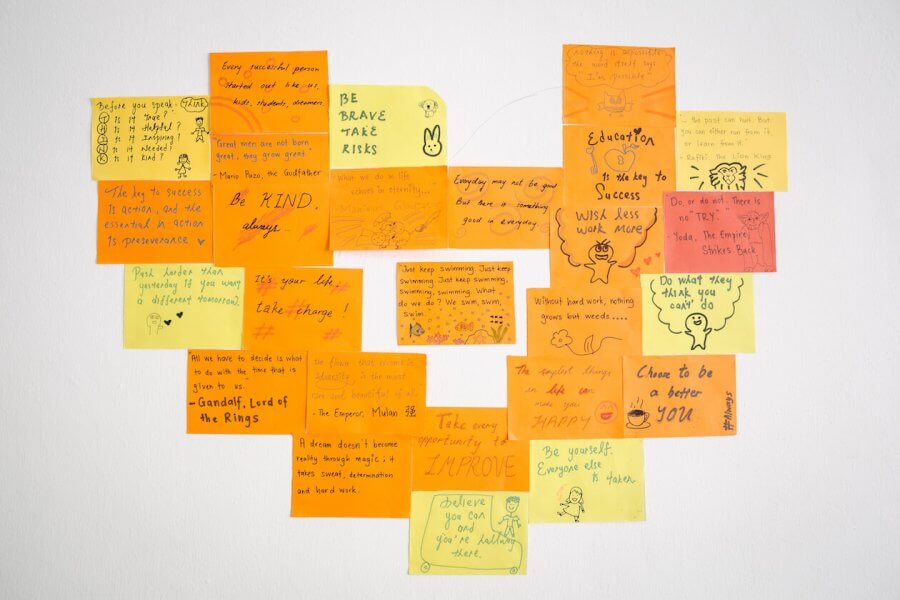 Every successful person
started out like us,
kids, students, dreamers.
Nothing is impossible
the word itself says
"I'm possible"
Before you speak - THINK
T Is it True?
H Is it Helpful?
I Is it Inspiring?
N Is it Needed?
K Is it Kind?
BE
BRAVE
TAKE
RISKS
"Great men are not born
great, they grow great."
- Mario Puzo, the Godfather
Education
Is the key to
Success
the past can hurt. But
you can either run from it,
or learn from it.
- Rafiki. The Lion King
The key to success
is action, and the
essential in action
is preseverance
Be KIND.
always..
What we do in life
echoes in eternity...
Everyday may not be good
But there is something
good in everyday.
WISH less
work more
"Do, or do not. There is
no "TRY."
- Yoda, The Empire
Strikes Back
Push harder than
yesterday if you want
a different tomorrow.
It's your life,
take charge!
# #
#
Just keep swimming. Just keep
swimming. Just keep swimming.
Swimming, swimming. What
do we do? We swim, swim,
swim.
Without hard work, nothing
grows but weeds....
Do what they
think you
can't do
All we have to decide is what
to do with the time that is
given to us."
- Gandalf, Lord of
the Rings
The flower that
adversity, is the most
rare and beautiful of all.
- The Emperor, Mulan 强
The simplest things
in life can
make you
HAPPY
Choose to be
a better
YOU
#Always
A dream doesn't become
reality through magic; it
takes sweat, determination
and hard work.
Take every
opportunity to
IMPROVE
Be yourself.
Everyone else
is taken
Believe
you can
and
you're halfway
there.